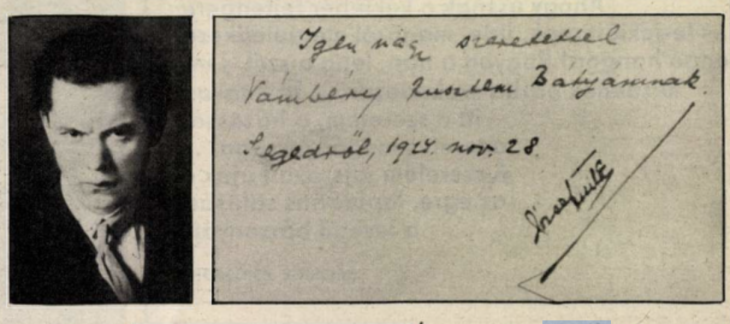 Igen nagy szeretettel
Vámbéry Rusztem Batyámnak.
Szegedről, 1924. nov. 28.
József Attila